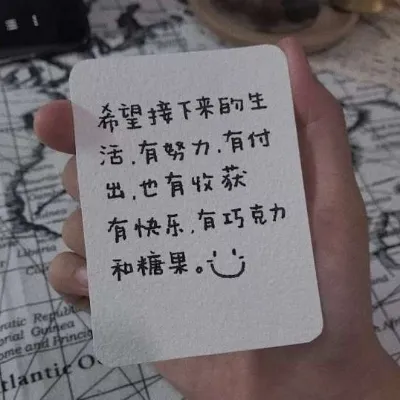 希望接下来的生
活,有努力,有付
出,也有收获
有快乐,有巧克力
和糖果。
Liberia
Equatorial Guinea
Atlantic Oc